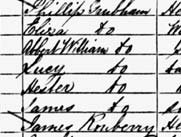 Phillip Grubham
Eliza Do W
Albert William Do
Lucy Do
Hester Do
James Do
James